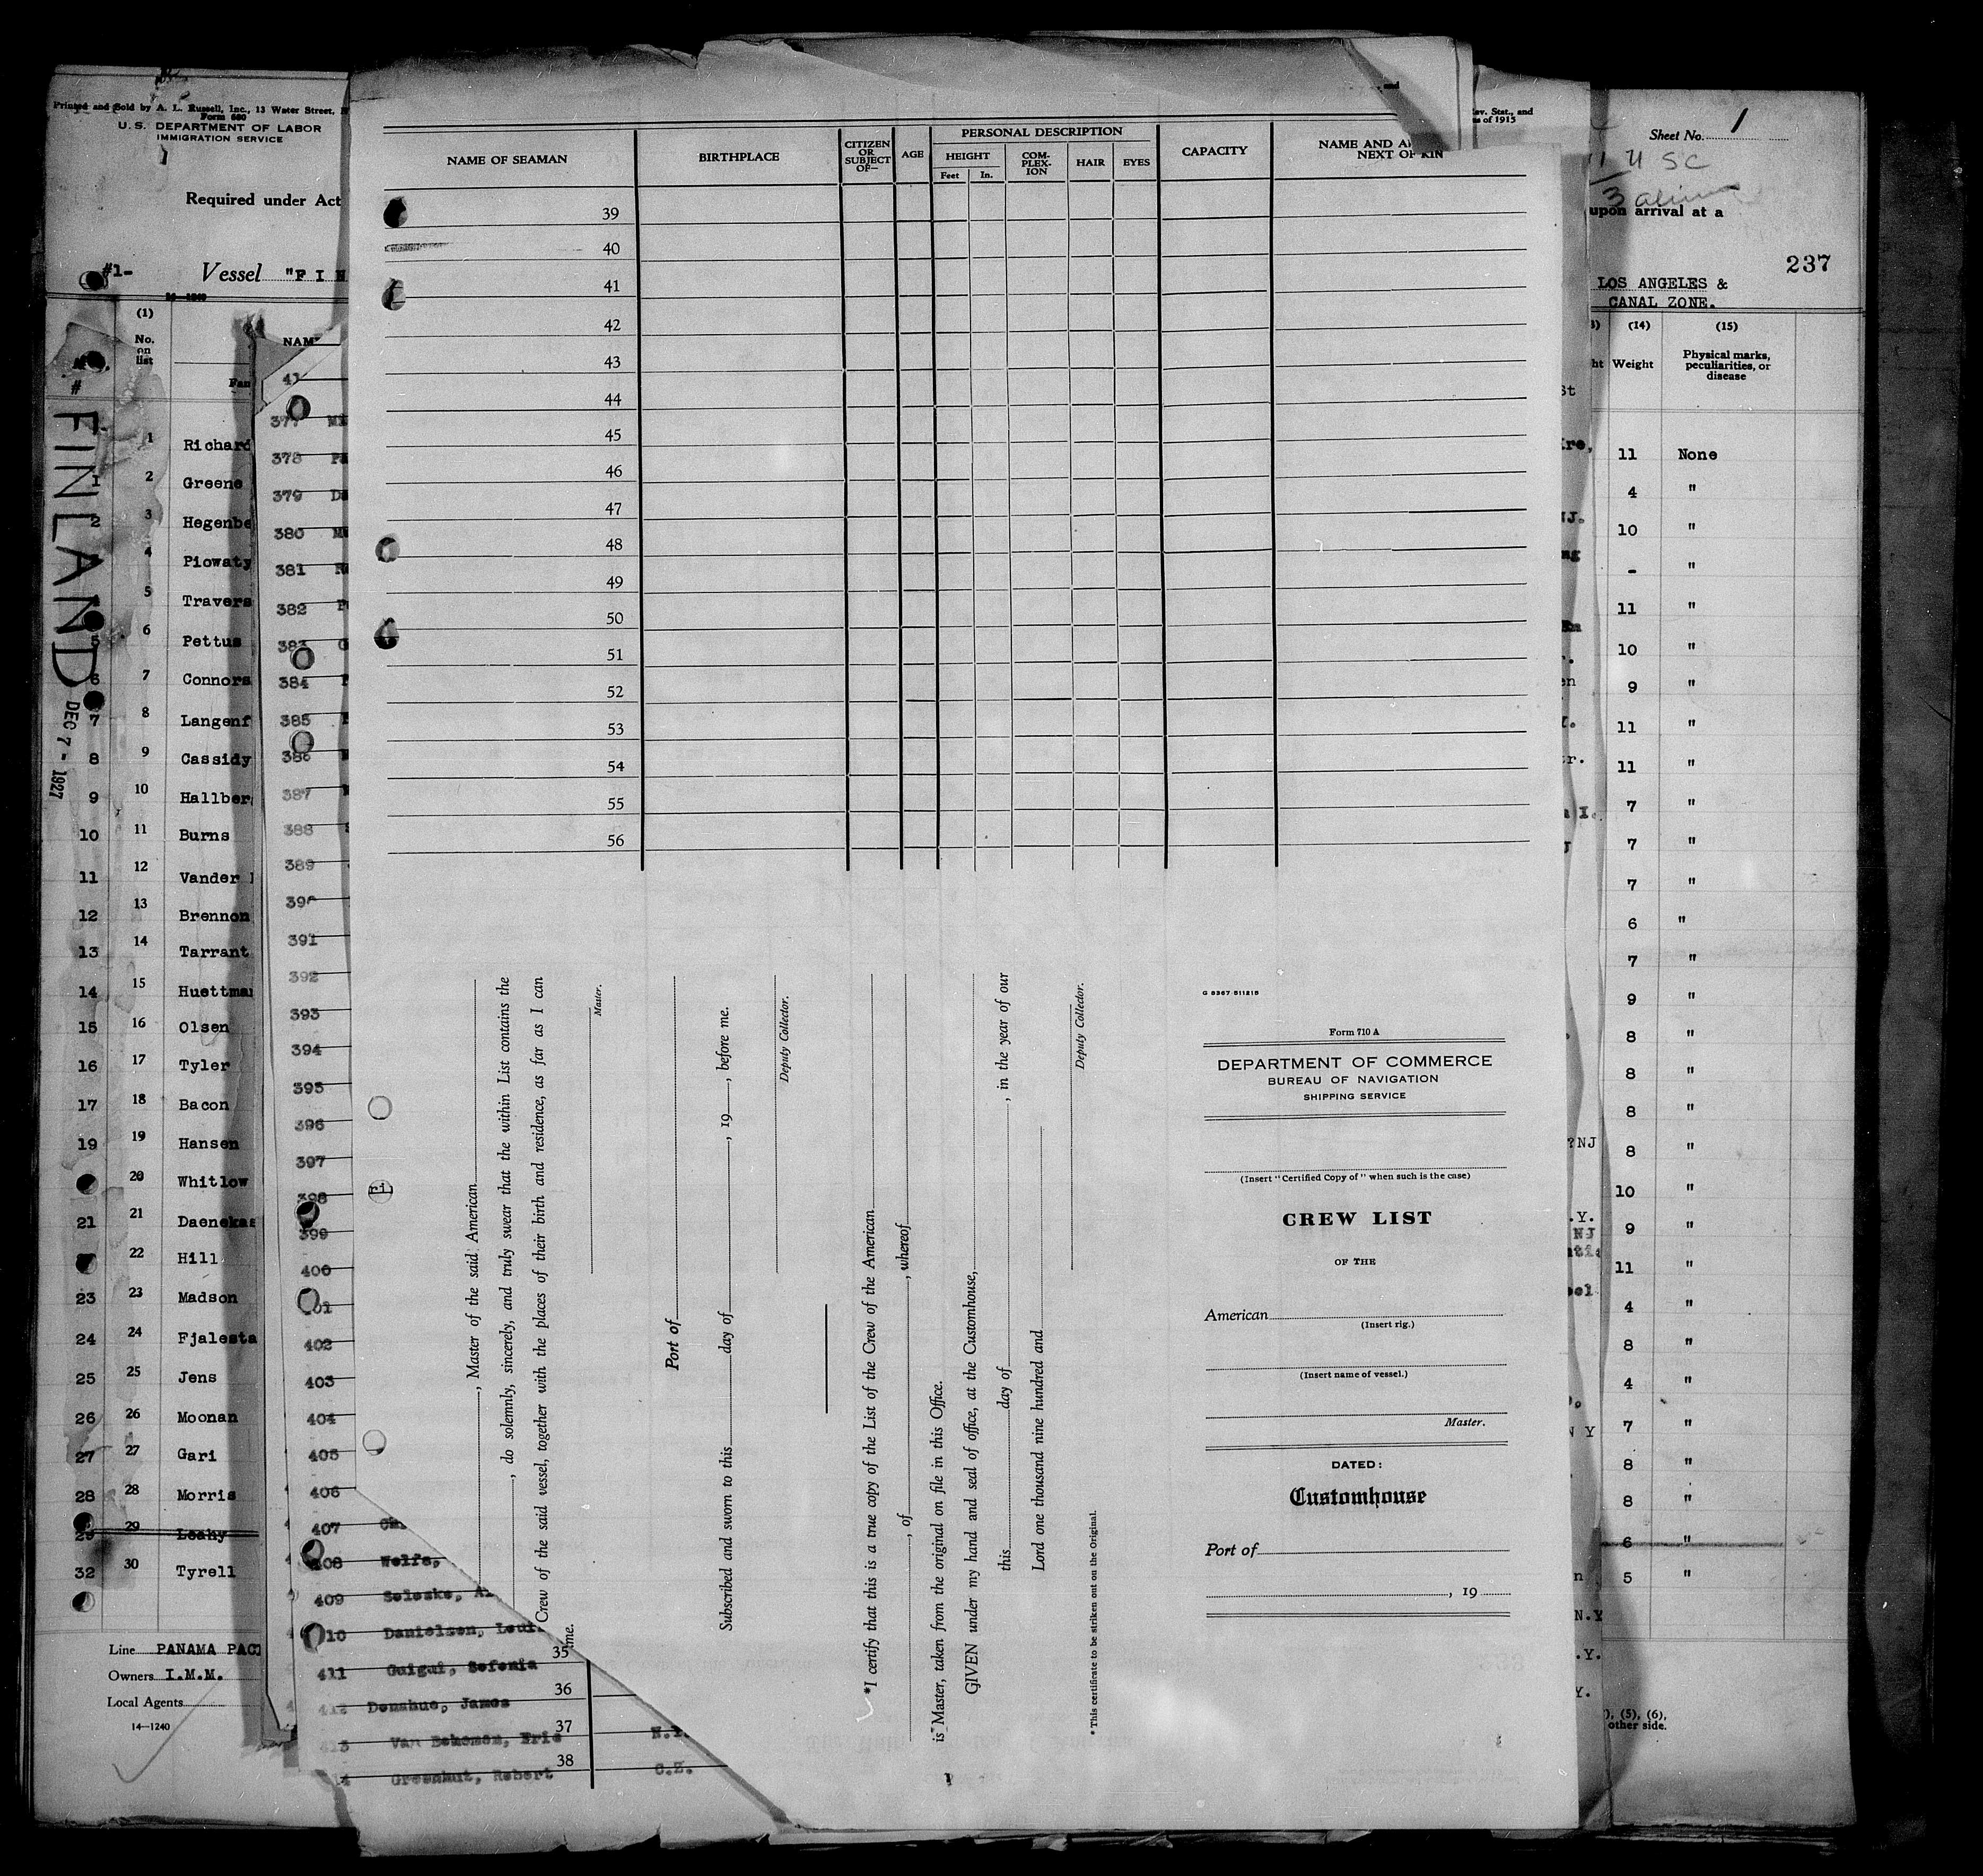 Printed and Sold by A. L. Russell, Inc., 13 Water Street,
Form 680
U.S. DEPARTMENT OF LABOR
IMMIGRATION SERVICE
Required under Act
#1-
Vessel "FIN
(1)
No.
on
list
FINLAND
DEC 7 - 1927
1 Richard
1 2 Greene
2 3 Hegenbe
4 Piowaty
5 Travers
5 6 Pettus
6 7 Connors
7 8 Langenf
8 9 Cassidy
9 10 Hallber
10 11 Burns
11 12 Vander
12 13 Brennon
13 14 Tarrant
14 15 Huettma
15 16 Olsen
16 17 Tyler
17 18 Bacon
19 19 Hansen
20 Whitlow
21 21 Daenekas
22 Hill
23 23 Madson
24 24 Fjalesta
25 25 Jens
26 26 Moonan
27 27 Gari
28 28 Morris
29 29 Leahy
32 30 Tyrell
Line PANAMA PAC
Owners I.M.M.
Local Agents
14—1240
377
378
379
380
381
382
383
384
385
386
387
388
389
391
392
393
394
395
396
397
398
399
400
401
402
403
404
405
406
407
408 Wolfe,
409 Seleske,
410 Danielsen, Loui
411 Guigui, Sefenia 35
412 Donahue, James 36
413 Van Behemen, Eric 37 N.Y.
Greenhut, Robert 38 C.Z.
NAME OF SEAMAN
BIRTHPLACE
CITIZEN
OR
SUBJECT
OF—
AGE
PERSONAL DESCRIPTION
HEIGHT
Feet In.
COM-
PLEX-
ION
HAIR
EYES
CAPACITY
NAME AND A
NEXT OF KIN
39
40
41
42
43
44
45
46
47
48
49
50
51
52
53
54
55
56
, Master of the said American
, do solemnly, sincerely, and truly swear that the within List contains the
Crew of the said vessel, together with the places of their birth and residence, as far as I can
Master.
Port of
Subscribed and sworn to this day of , 19 , before me.
Deputy Collector.
*I certify that this is a true copy of the List of the Crew of the American
, of , whereof
is Master, taken from the original on file in this Office.
GIVEN under my hand and seal of office, at the Customhouse,
this day of , in the year of our
Lord one thousand nine hundred and
Deputy Collector.
* This certificate to be striken out on the Original.
G 8367 511215
Form 710 A
DEPARTMENT OF COMMERCE
BUREAU OF NAVIGATION
SHIPPING SERVICE
(Insert "Certified Copy of" when such is the case)
CREW LIST
OF THE
American
(Insert rig.)
(Insert name of vessel.)
Master.
DATED:
Customhouse
Port of
, 19
Sheet No. 1
1 USC
3 alien
upon arrival at a
237
LOS ANGELES &
CANAL ZONE.
(14) (15)
Weight
Physical marks,
peculiarities, or
disease
11 None
4 "
10 "
- "
11 "
10 "
9 "
11 "
11 "
7 "
7 "
7 "
6 "
7 "
9 "
8 "
8 "
8 "
8 "
10 "
9 "
11 "
4 "
8 "
4 "
7 "
8 "
8 "
6 "
5 "
), (5), (6),
other side.